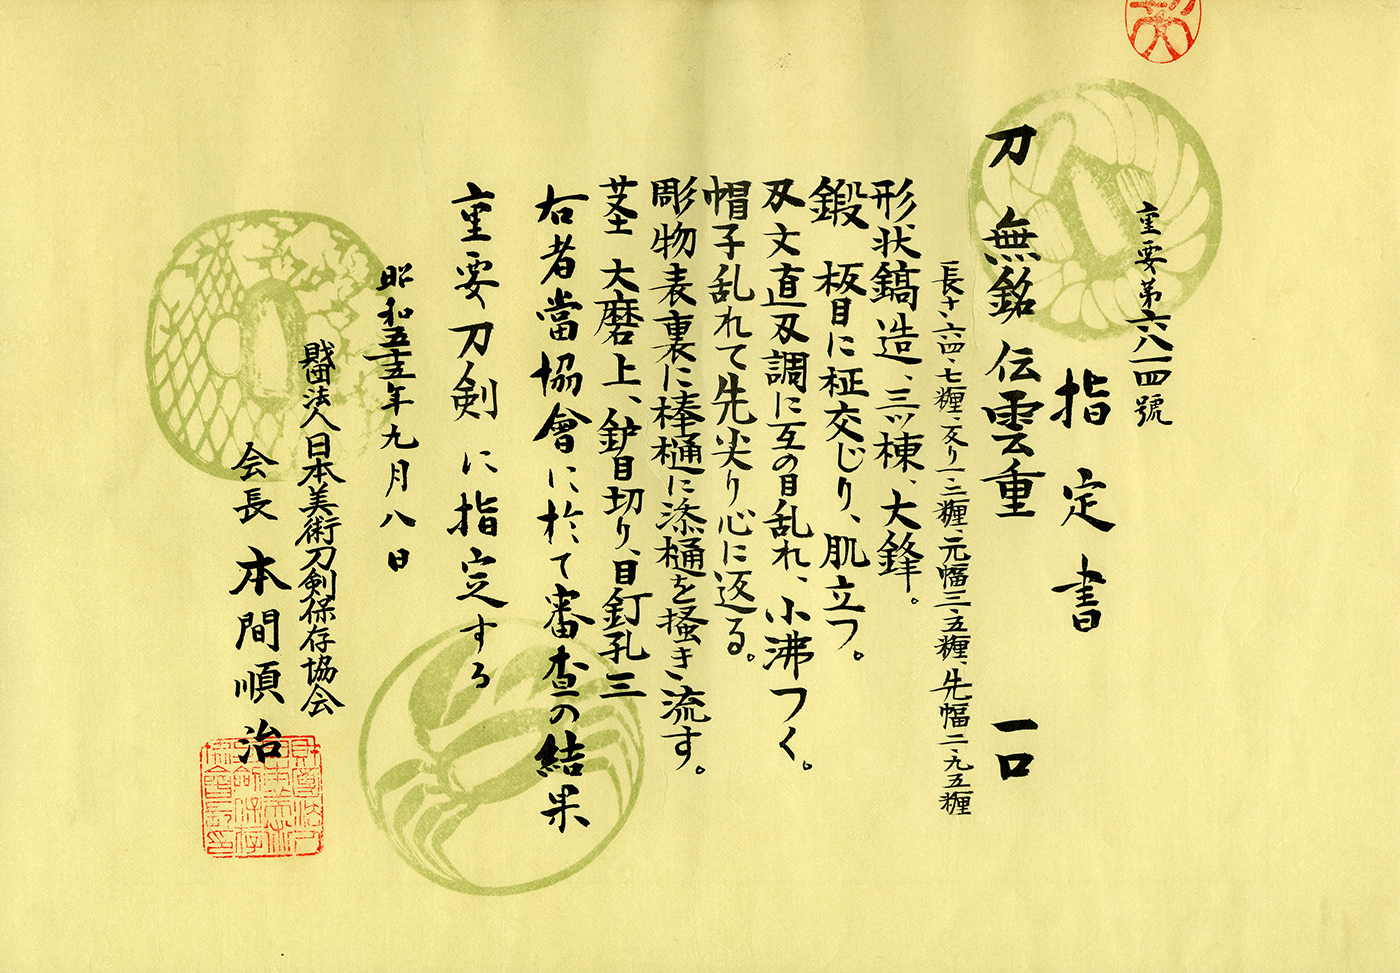 重要第六八一四號
指定書
刀 無銘 伝雲重 一口
長サ、六四・七糎、反り一・三糎、元幅三・五糎、先幅二・九五糎
形状鎬造、三ッ棟、大鋒。
鍛 板目に柾交じり、肌立つ。
刄文直刄調に互の目乱れ、小沸つく。
帽子乱れて先尖り心に返る。
彫物表裏に棒樋に添樋を掻き流す。
茎 大磨上、鈩目切り、目釘孔三
右者當協會に於て審査の結果
重要刀剣に指定する
昭和五十五年九月八日
財団法人日本美術刀剣保存協会
会長 本間順治